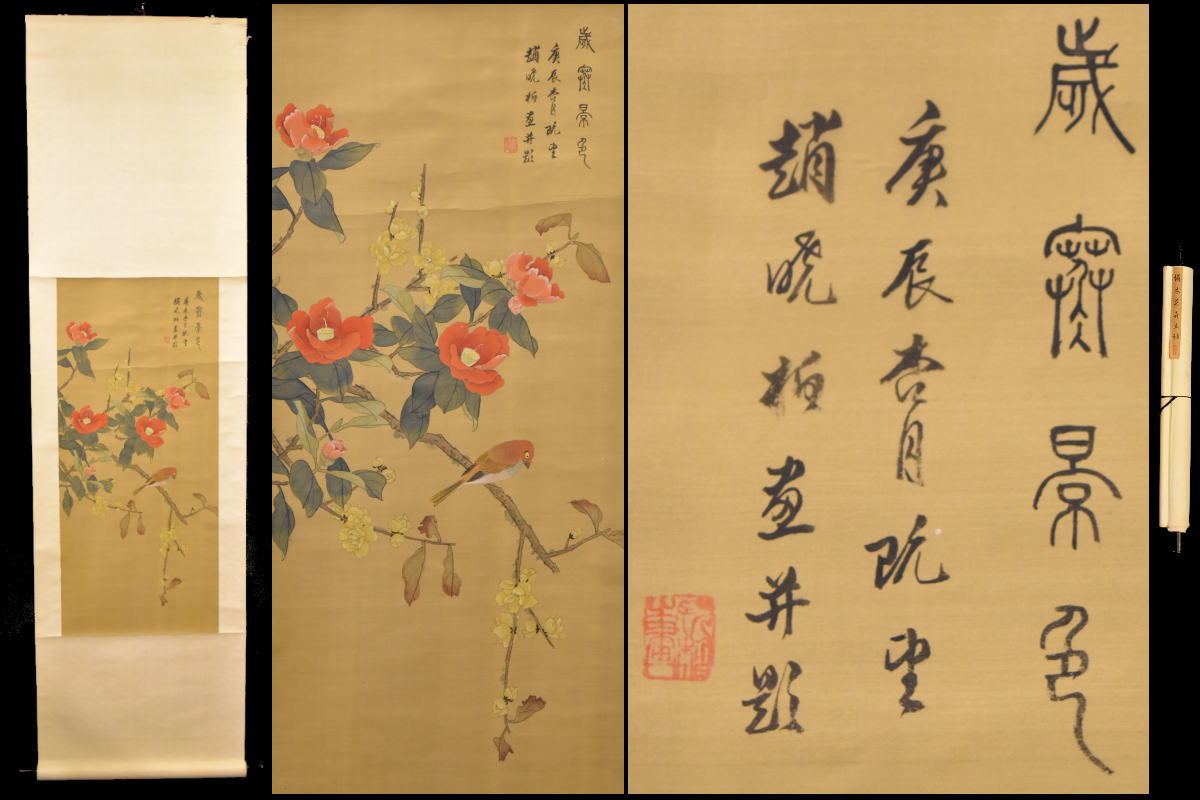 歲寒景色
庚辰杏月既望
趙曉栢画并題